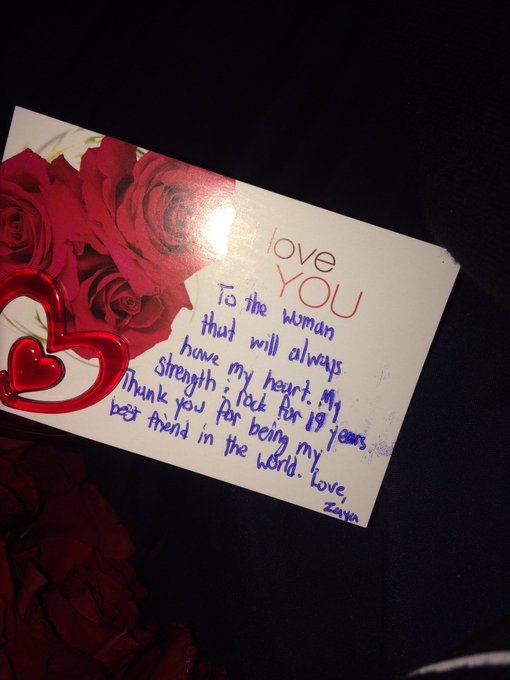 I love
YOU
To the woman
that will always
have my heart. My
strength & rock for 19 years
Thank you for being my
best friend in the world. Love,
Zaya